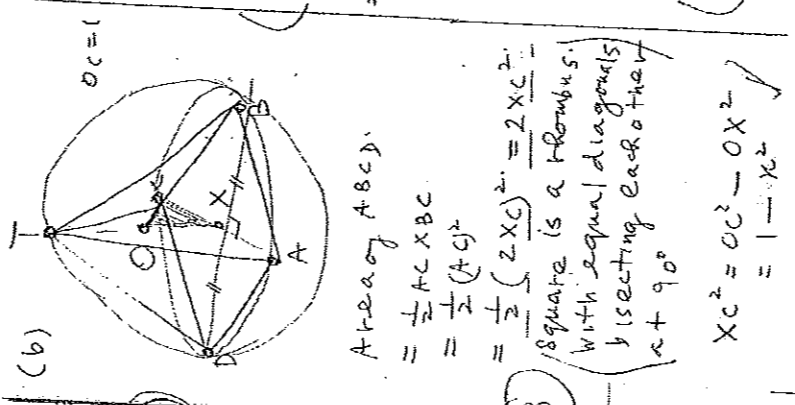 (b)
OC = 1
T
O
C
X
B
D
A
Area of ABCD.
= 1/2 AC × BC
= 1/2 (AC)²
= 1/2 (2XC)² = 2XC².
(Square is a rhombus
with equal diagonals
bisecting each other
at 90°)
XC² = OC² − OX²
= 1 − x²